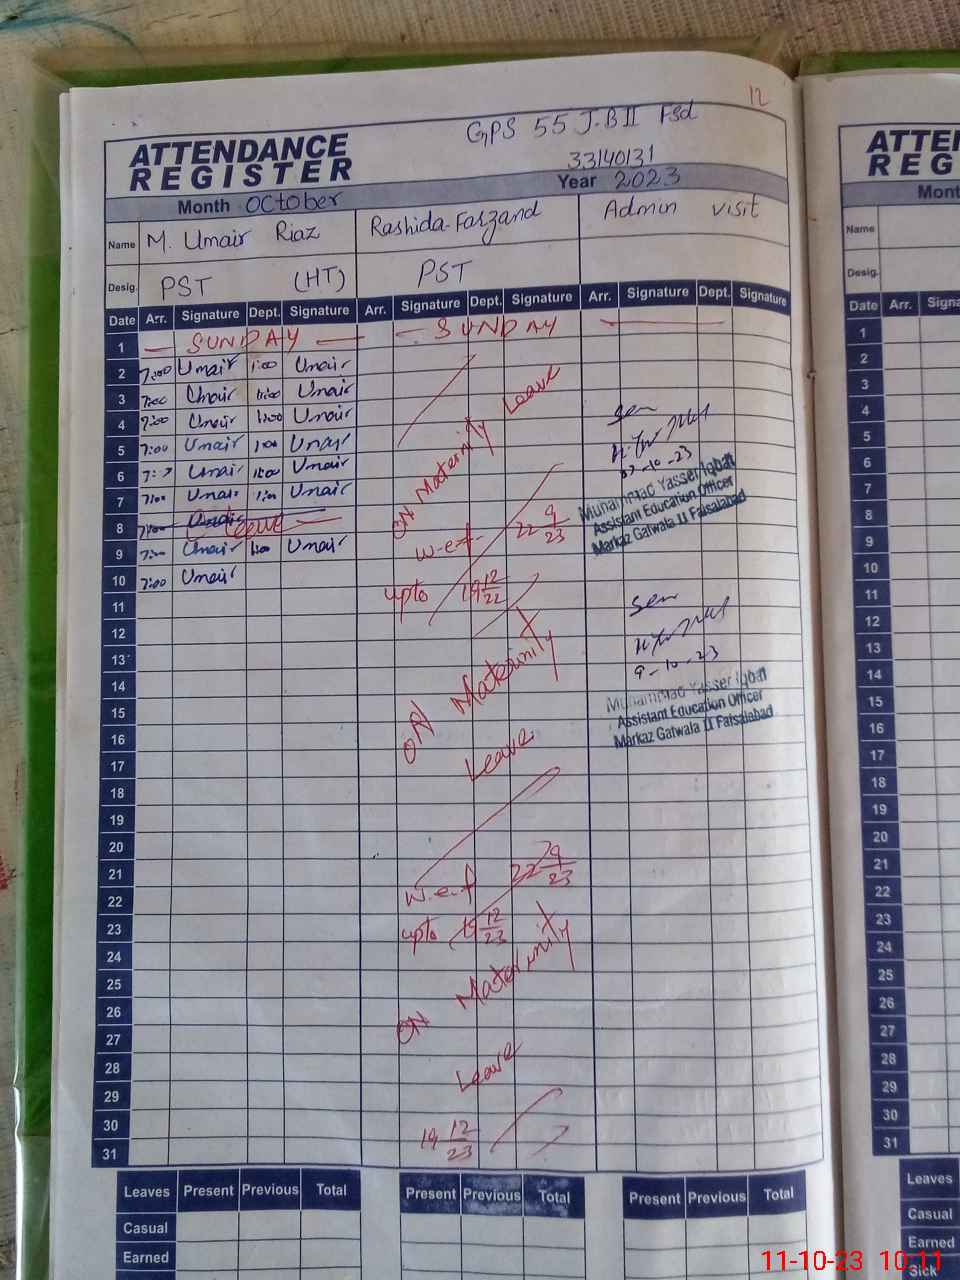 12
GPS 55 J.B II Fsd
ATTENDANCE
REGISTER
33140131
Month October Year 2023
Name M. Umair Riaz Rashida Farzand Admin visit
Desig. PST (HT) PST
Date Arr. Signature Dept. Signature Arr. Signature Dept. Signature Arr. Signature Dept. Signature
1 SUNDAY SUNDAY
2 7:00 Umair 1:00 Umair
3 7:00 Umair 1:00 Umair
4 7:00 Umair 1:00 Umair
5 7:00 Umair 1:00 Umair
6 Umair 1:00 Umair
7 7:00 Umair 1:00 Umair
8 Leave
9 7:00 Umair 1:00 Umair
10 7:00 Umair
11
12
13
14
15
16
17
18
19
20
21
22
23
24
25
26
27
28
29
30
31
ON Maternity Leave
w.e.f 22 9/23
upto 19 12/22
ON Maternity
Leave
w.e.f 22 9/23
upto 19 12/23
ON Maternity
Leave
19 12/23
Seen
-10-23
Muhammad Yasser Iqbal
Assistant Education Officer
Markaz Gatwala II Faisalabad
Seen
9-10-23
Muhammad Yasser Iqbal
Assistant Education Officer
Markaz Gatwala II Faisalabad
Leaves Present Previous Total Present Previous Total Present Previous Total
Casual
Earned
ATTEN
REG
Mont
Name
Desig.
Date Arr. Signa
1
2
3
4
5
6
7
8
9
10
11
12
13
14
15
16
17
18
19
20
21
22
23
24
25
26
27
28
29
30
31
Leaves
Casual
Earned
Sick
11-10-23 10:11